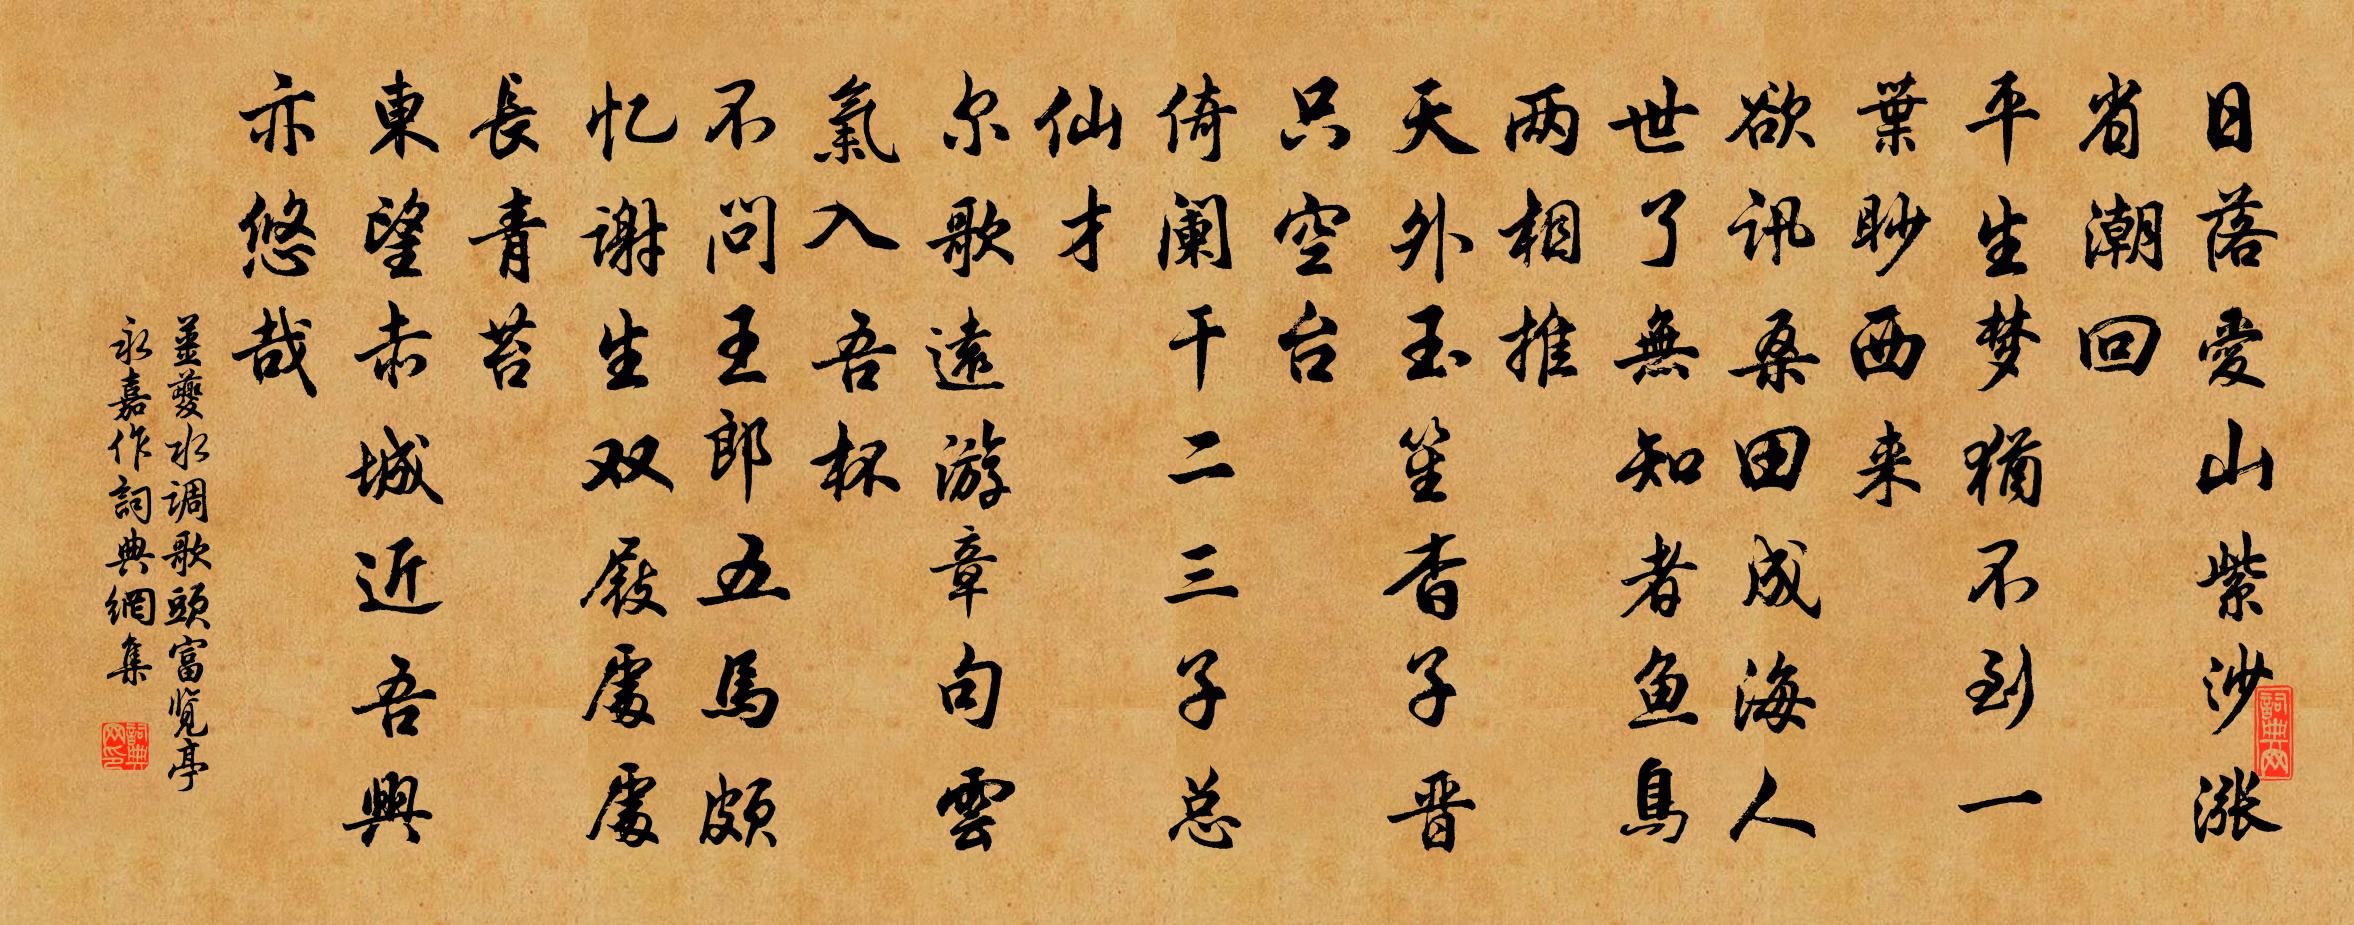 日落愛山紫沙漲
省潮回
平生梦猶不到一
葉眇西来
欲訊桑田成海人
世了無知者魚鳥
两相推
天外玉笙杳子晋
只空台
倚阑干二三子总
仙才
尔歌遠游章句雲
氣入吾杯
不问王郎五馬頗
忆谢生双屐處處
長青苔
東望赤城近吾興
亦悠哉
姜夔水调歌頭富览亭
永嘉作詞典網集
詞典网
詞典网印